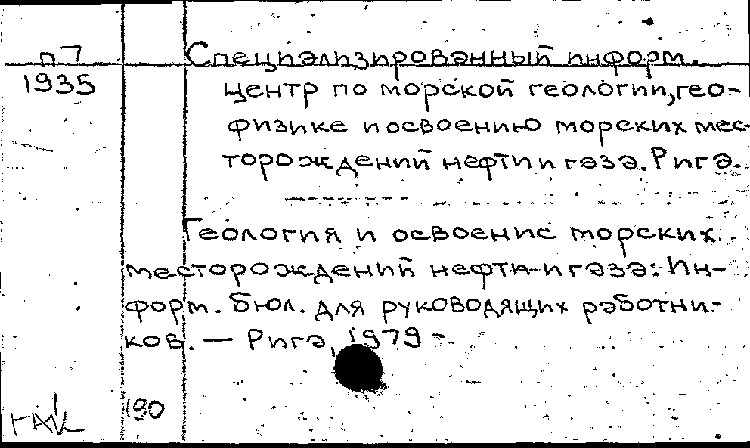 п7 Специализированный информ.
1935 центр по морской геологии, гео-
физике и освоению морских мес-
торождений нефти и газа. Рига.
Геология и освоение морских
месторождений нефти и газа: Ин-
форм. бюл. для руководящих работни-
ков. — Рига, 1979 -
190